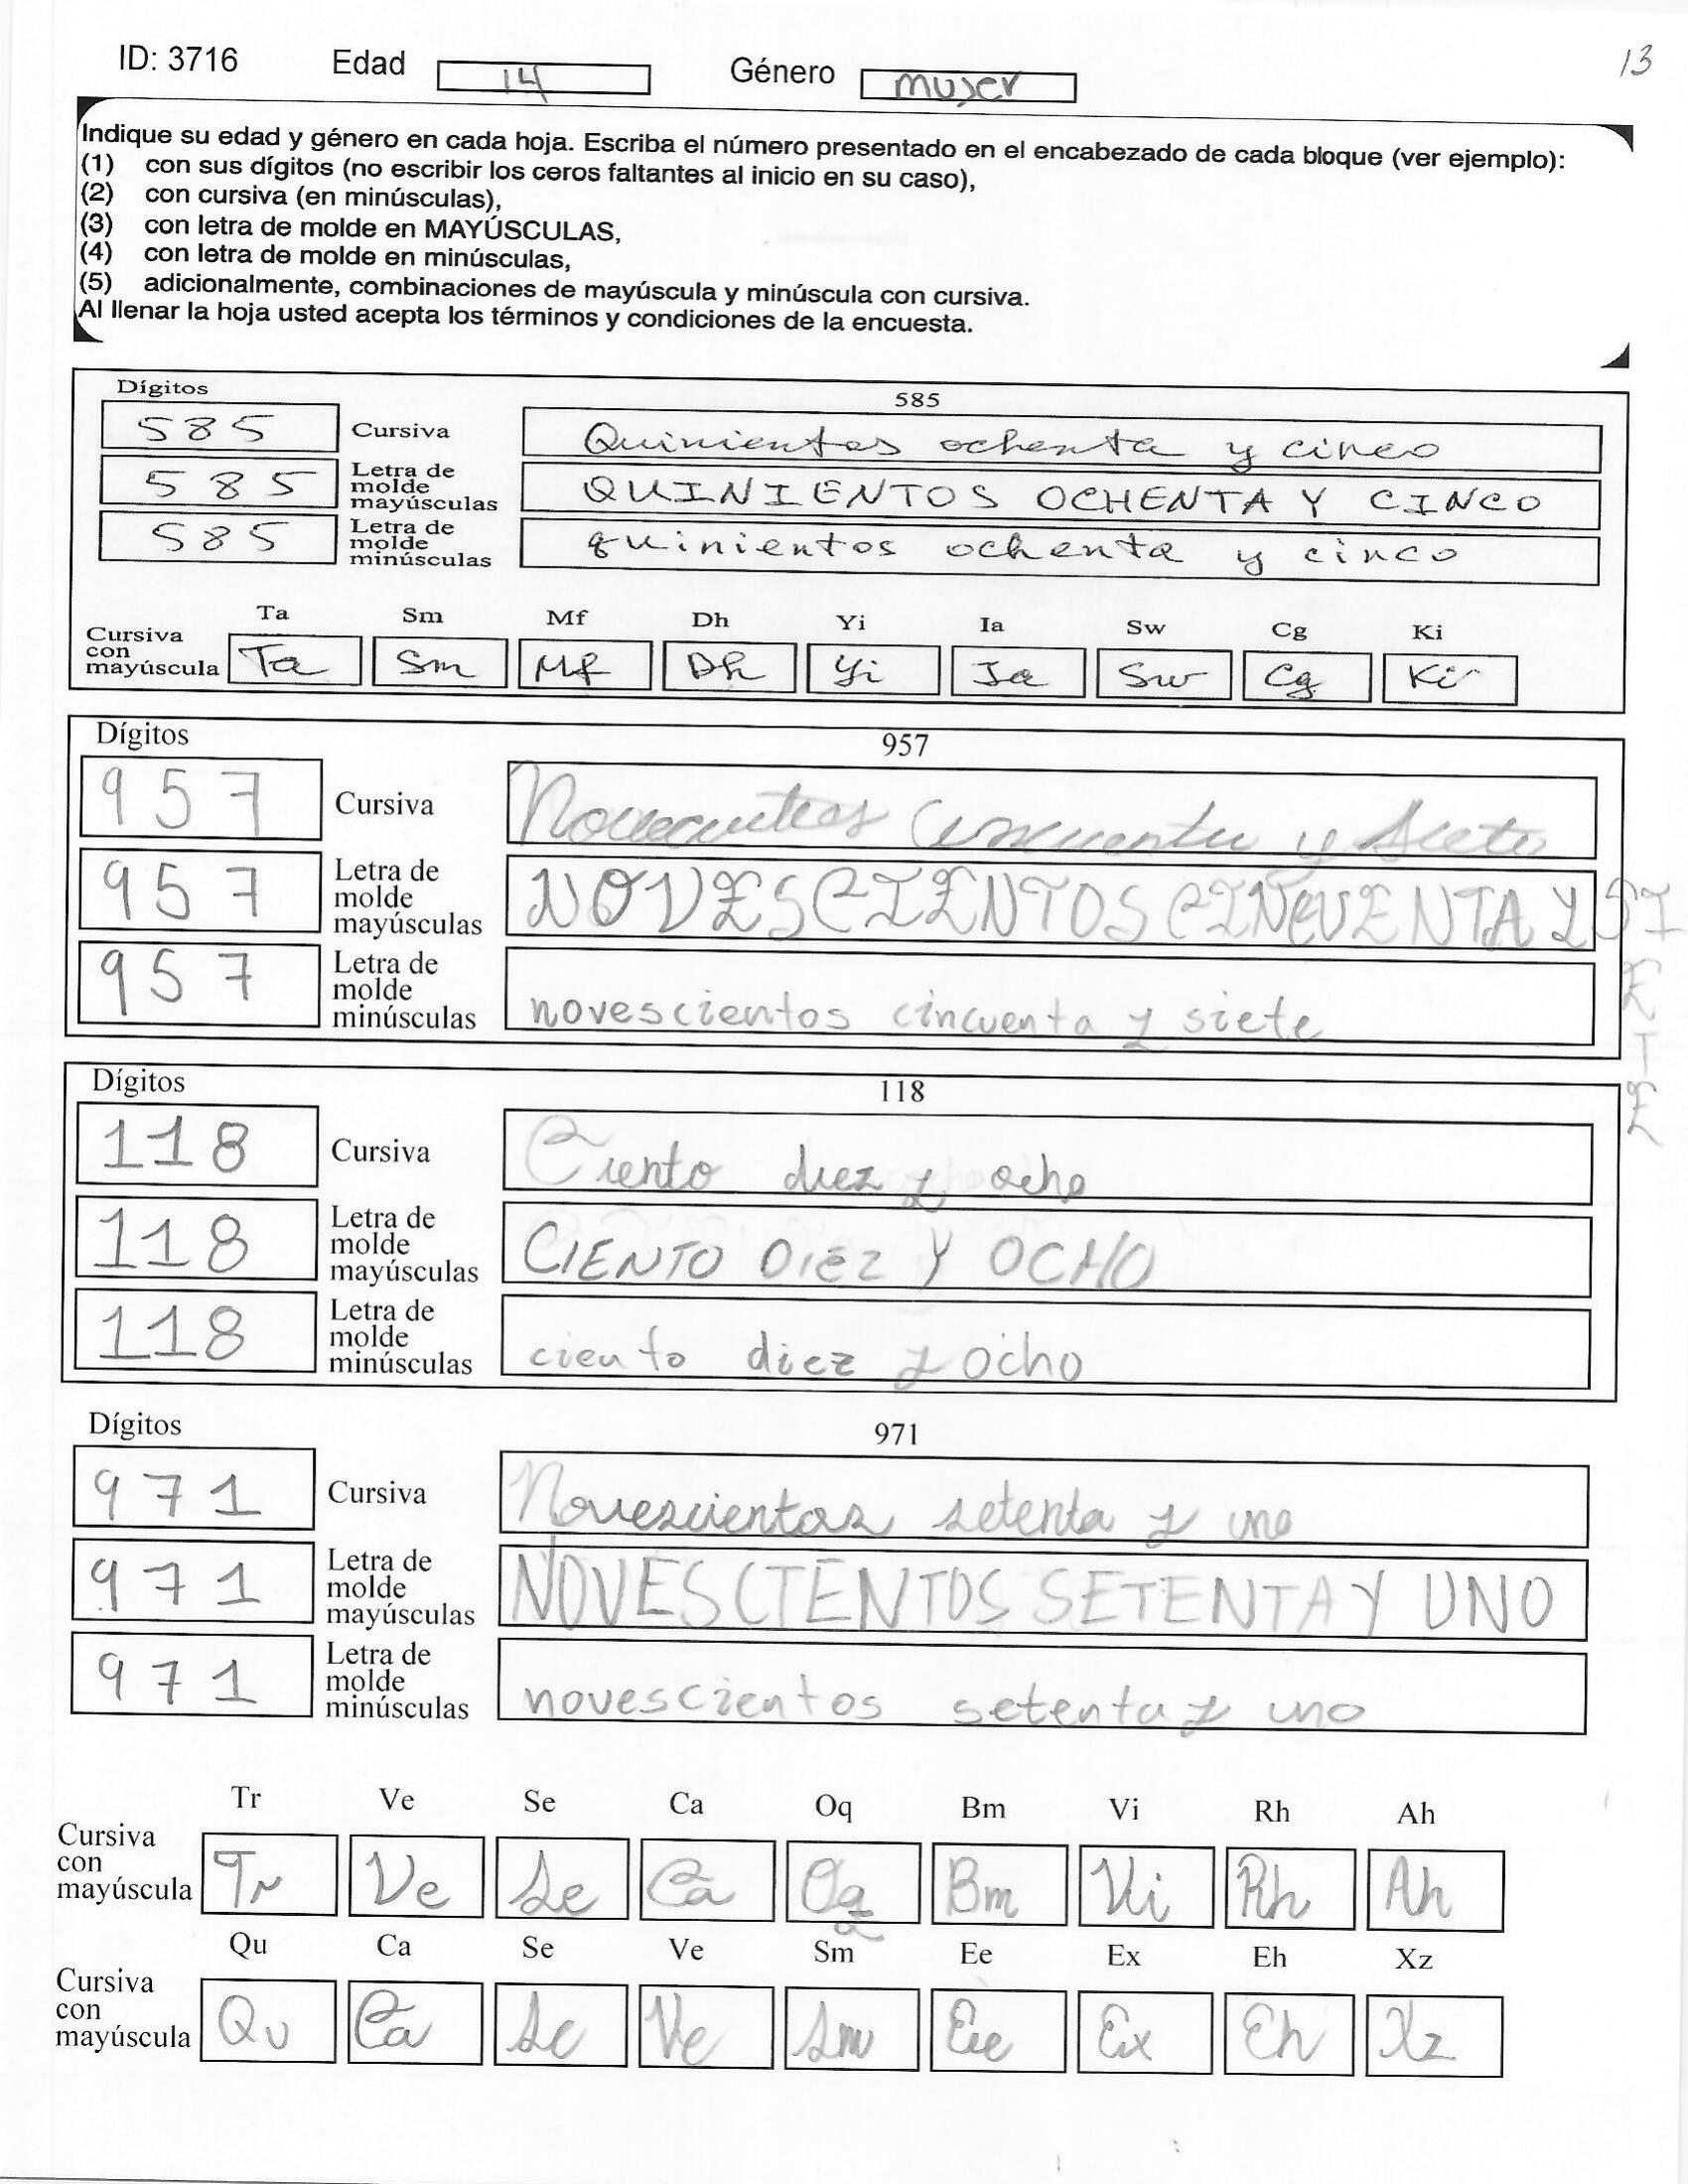 ID: 3716 Edad 14 Género mujer 13
Indique su edad y género en cada hoja. Escriba el número presentado en el encabezado de cada bloque (ver ejemplo):
(1) con sus dígitos (no escribir los ceros faltantes al inicio en su caso),
(2) con cursiva (en minúsculas),
(3) con letra de molde en MAYÚSCULAS,
(4) con letra de molde en minúsculas,
(5) adicionalmente, combinaciones de mayúscula y minúscula con cursiva.
Al llenar la hoja usted acepta los términos y condiciones de la encuesta.
Dígitos 585
585 Cursiva Quinientos ochenta y cinco
585 Letra de molde mayúsculas QUINIENTOS OCHENTA Y CINCO
585 Letra de molde minúsculas quinientos ochenta y cinco
Ta Sm Mf Dh Yi Ia Sw Cg Ki
Cursiva con mayúscula Ta Sm Mf Dh Yi Ia Sw Cg Ki
Dígitos 957
957 Cursiva cincuenta y siete
957 Letra de molde mayúsculas NOVESCIENTOS CINCUENTA Y SIETE
957 Letra de molde minúsculas novescientos cincuenta y siete
Dígitos 118
118 Cursiva Ciento diez y ocho
118 Letra de molde mayúsculas CIENTO DIEZ Y OCHO
118 Letra de molde minúsculas ciento diez y ocho
Dígitos 971
971 Cursiva Novescientos setenta y uno
971 Letra de molde mayúsculas NOVESCIENTOS SETENTA Y UNO
971 Letra de molde minúsculas novescientos setenta y uno
Tr Ve Se Ca Oq Bm Vi Rh Ah
Cursiva con mayúscula Tr Ve Se Ca Oq Bm Vi Rh Ah
Qu Ca Se Ve Sm Ee Ex Eh Xz
Cursiva con mayúscula Qu Ca Se Ve Sm Ee Ex Eh Xz